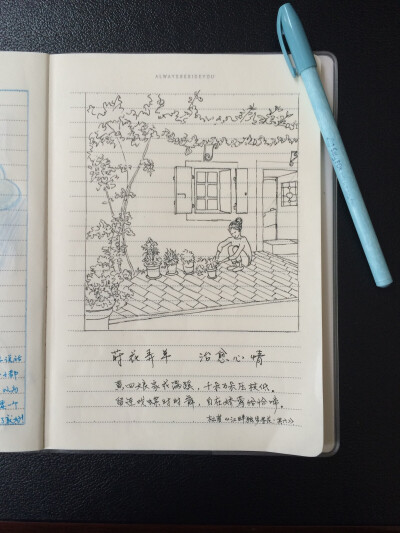 ALWAYSBESIDEYOU
莳花弄草 治愈心情
黄四娘家花满蹊，千朵万朵压枝低。
留连戏蝶时时舞，自在娇莺恰恰啼。
杜甫《江畔独步寻花·其六》